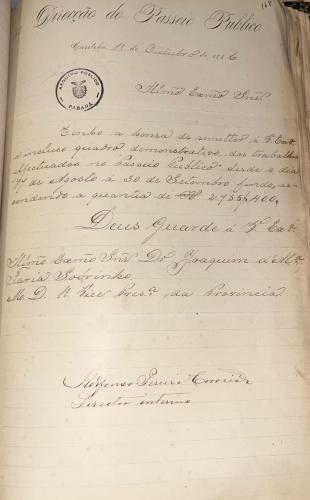 168
Direcção do Passeio Publico
Curitiba 12 de Outubro de 1886
ARCHIVO PUBLICO
PARANÁ
Illmo Exmo Snr
Tenho a honra de remetter á V. Exa
o incluso quadro demonstrativo, dos trabalhos
effectuados no "Passeio Publico" desde o dia
de Agosto á 30 de Setembro findo, as-
cendendo a quantia de 2.755$400,
Deus Guarde á V. Exa
Illmo Exmo Snr Dr Joaquim d'Alma
Faria Sobrinho
M. D. 1º Vice Presa da Provincia
Ildefonso Pereira Correia
Director interino